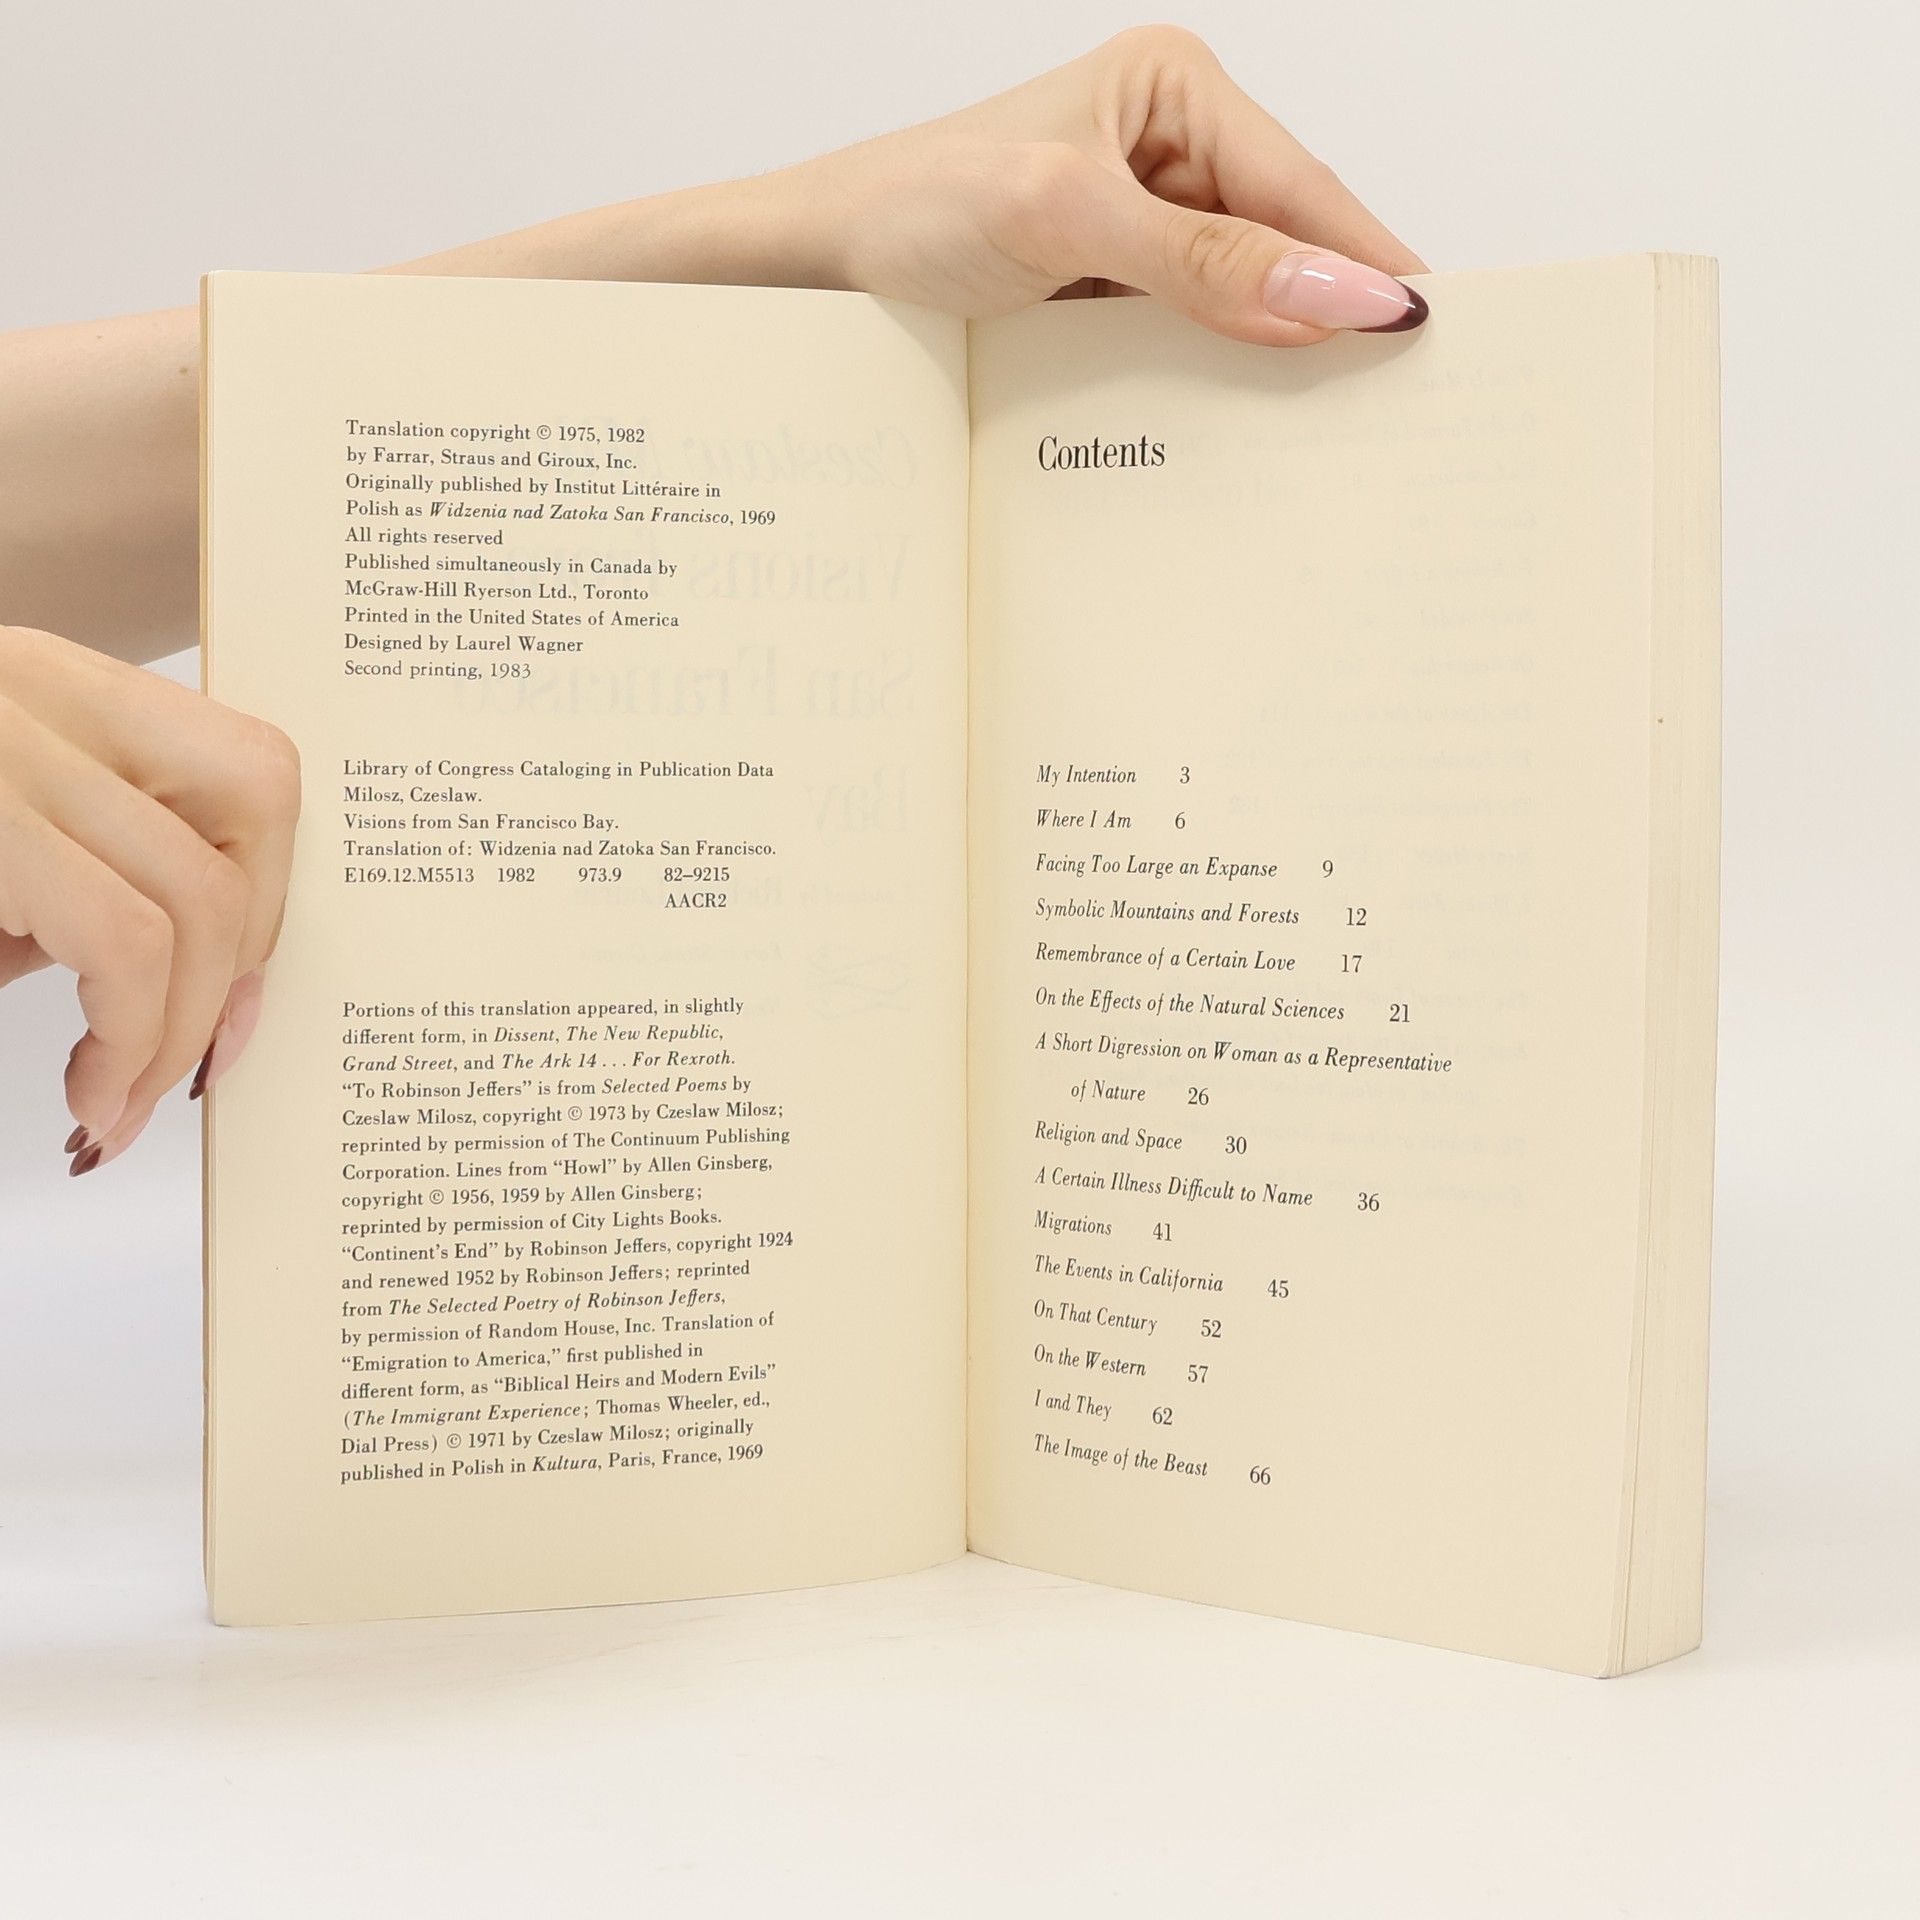 Translation copyright © 1975, 1982
by Farrar, Straus and Giroux, Inc.
Originally published by Institut Littéraire in
Polish as Widzenia nad Zatoka San Francisco, 1969
All rights reserved
Published simultaneously in Canada by
McGraw-Hill Ryerson Ltd., Toronto
Printed in the United States of America
Designed by Laurel Wagner
Second printing, 1983
Library of Congress Cataloging in Publication Data
Milosz, Czeslaw.
Visions from San Francisco Bay.
Translation of: Widzenia nad Zatoka San Francisco.
E169.12.M5513 1982 973.9 82–9215
AACR2
Portions of this translation appeared, in slightly
different form, in Dissent, The New Republic,
Grand Street, and The Ark 14 . . . For Rexroth.
“To Robinson Jeffers” is from Selected Poems by
Czeslaw Milosz, copyright © 1973 by Czeslaw Milosz;
reprinted by permission of The Continuum Publishing
Corporation. Lines from “Howl” by Allen Ginsberg,
copyright © 1956, 1959 by Allen Ginsberg;
reprinted by permission of City Lights Books.
“Continent’s End” by Robinson Jeffers, copyright 1924
and renewed 1952 by Robinson Jeffers; reprinted
from The Selected Poetry of Robinson Jeffers,
by permission of Random House, Inc. Translation of
“Emigration to America,” first published in
different form, as “Biblical Heirs and Modern Evils”
(The Immigrant Experience; Thomas Wheeler, ed.,
Dial Press) © 1971 by Czeslaw Milosz; originally
published in Polish in Kultura, Paris, France, 1969
Contents
My Intention 3
Where I Am 6
Facing Too Large an Expanse 9
Symbolic Mountains and Forests 12
Remembrance of a Certain Love 17
On the Effects of the Natural Sciences 21
A Short Digression on Woman as a Representative
of Nature 26
Religion and Space 30
A Certain Illness Difficult to Name 36
Migrations 41
The Events in California 45
On That Century 52
On the Western 57
I and They 62
The Image of the Beast 66